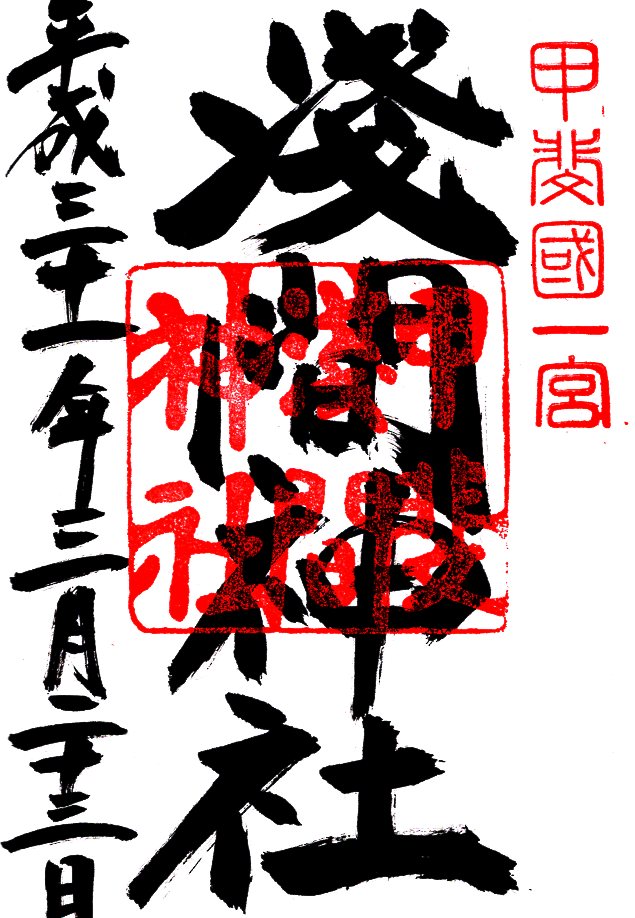 甲斐國一宮
淺間神社
甲斐
淺間
神社
平成三十一年三月二十三日